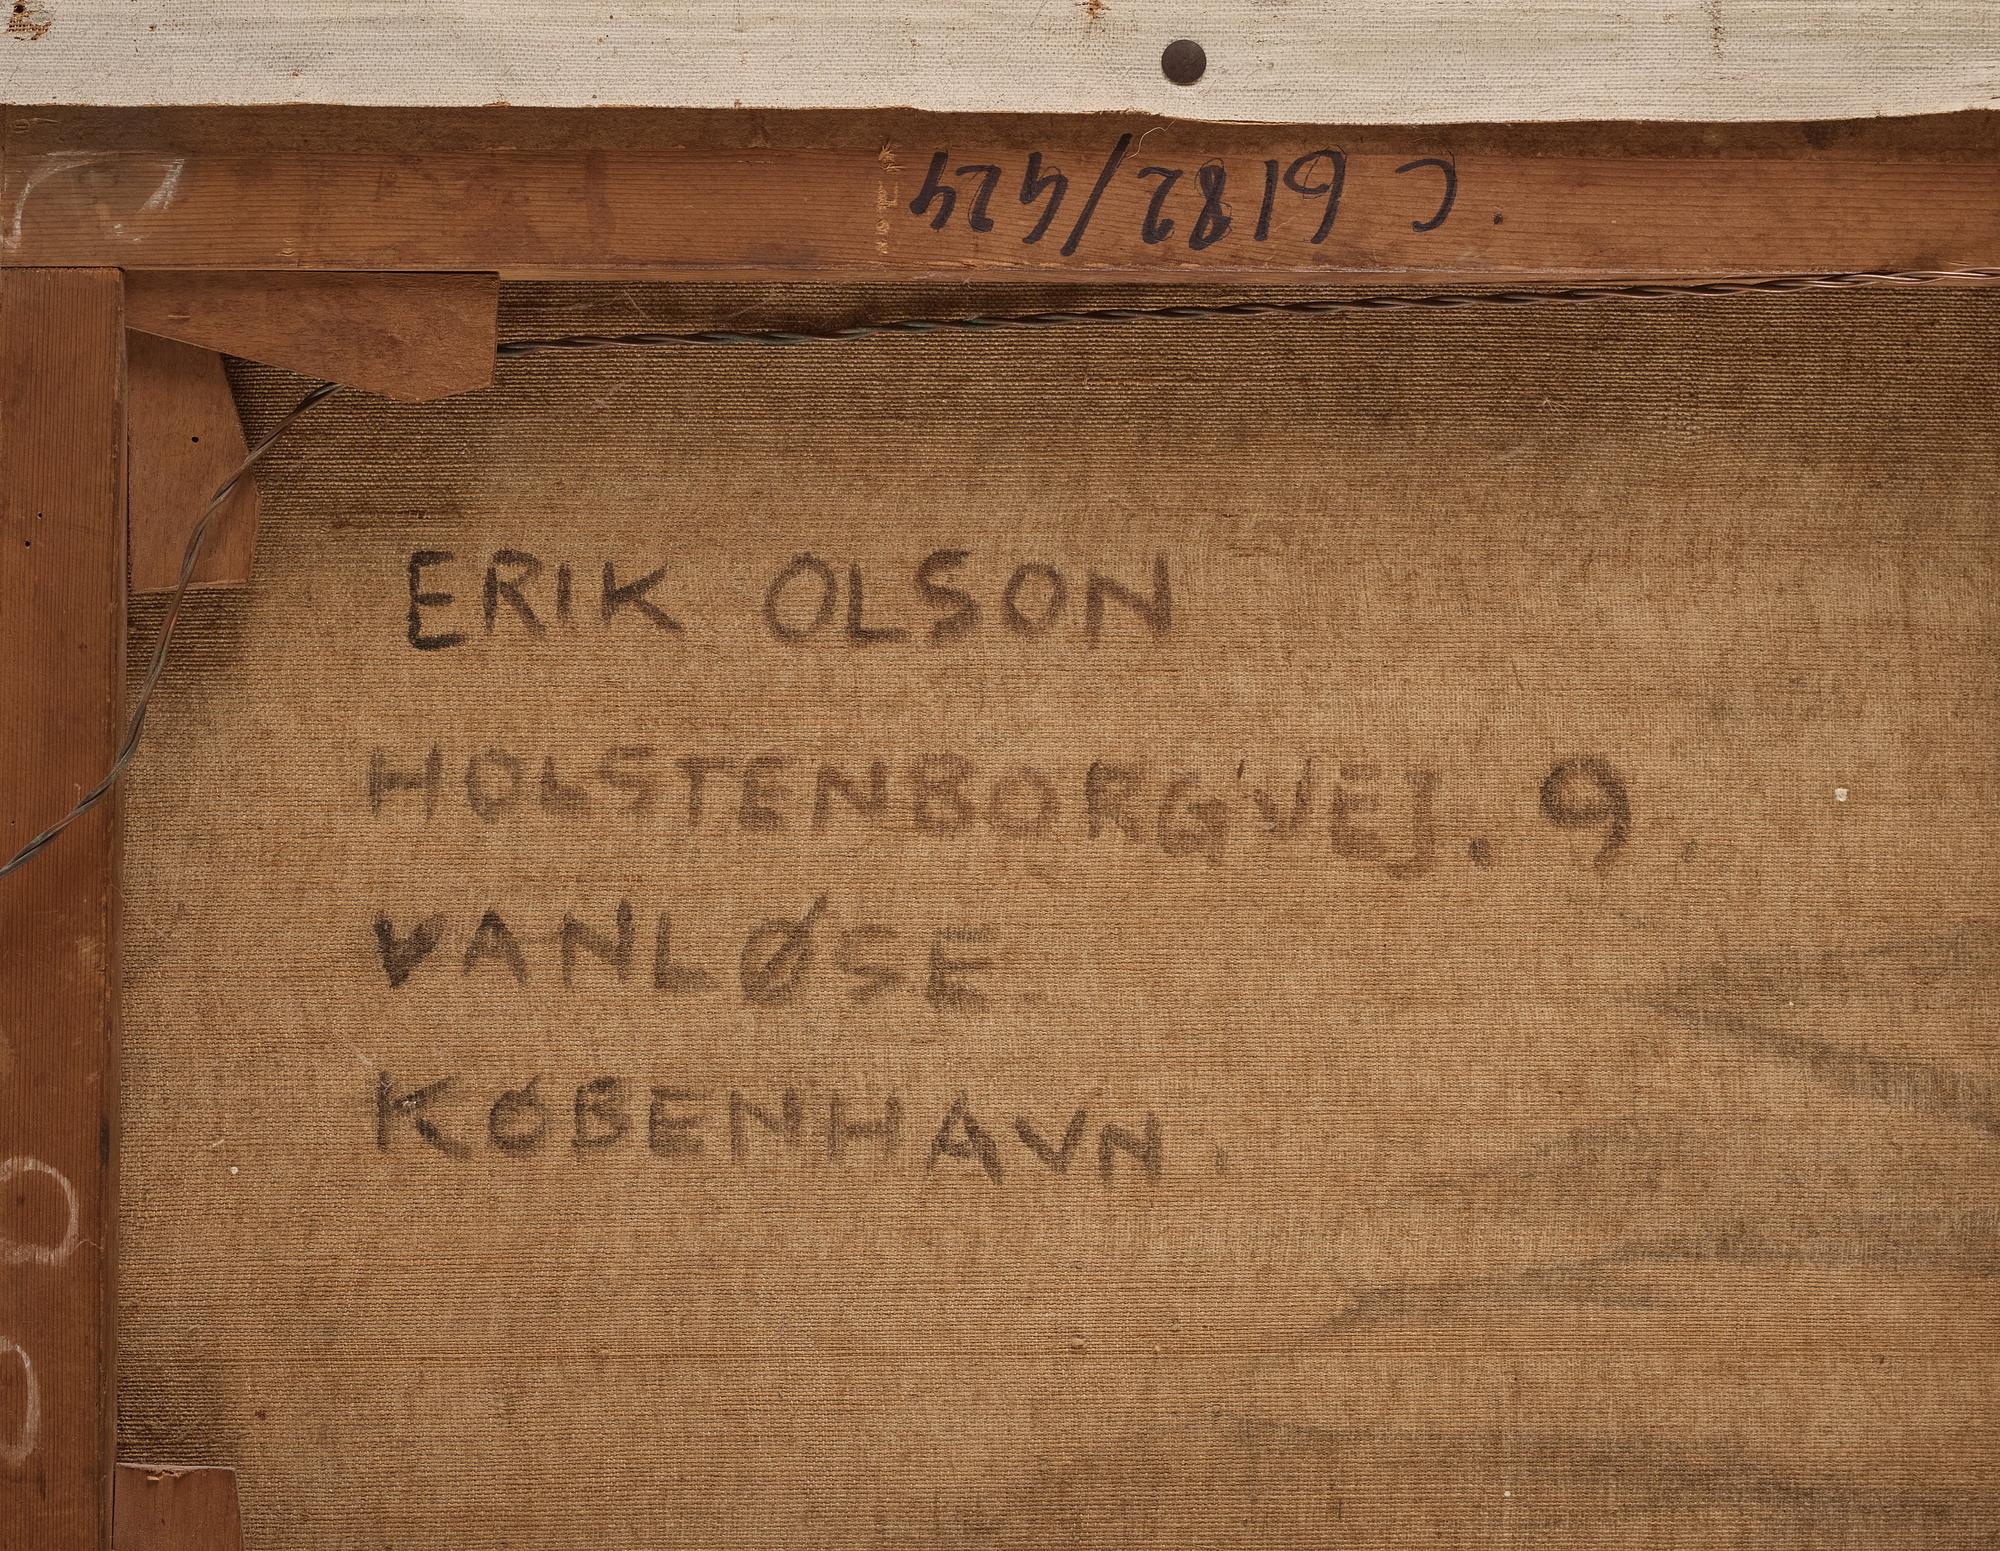 C 6182/424
ERIK OLSON
HOLSTENBORGVEJ. 9.
VANLØSE
KØBENHAVN.